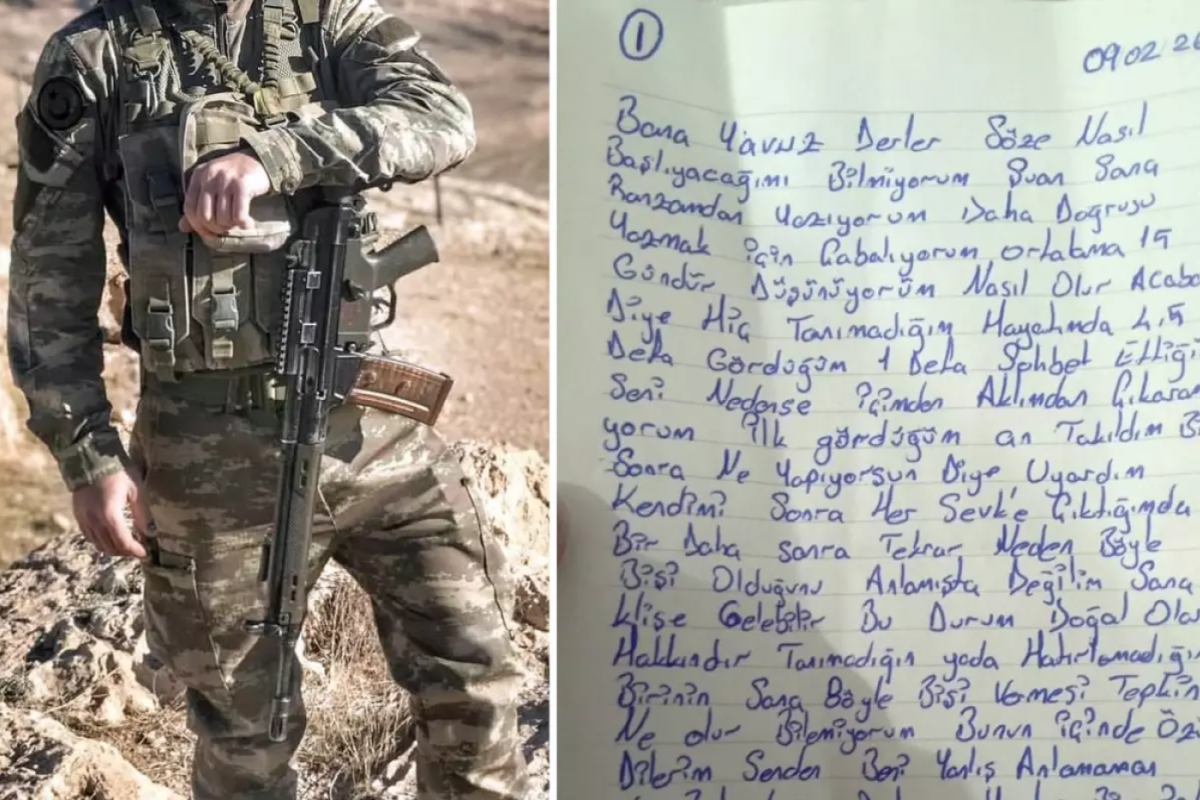 1
09.02.20
Bana Yavuz Derler Söze Nasıl
Başlıyacağımı Bilmiyorum Şuan Sana
Ranzamdan Yazıyorum Daha Doğrusu
Yazmak için Çabalıyorum ortalama 15
Gündür Düşünüyorum Nasıl Olur Acaba
Diye Hiç Tanımadığım Hayatımda 4,5
Defa Gördüğüm 1 Defa Sohbet Ettiği
Seni Nedense içimden Aklımdan Çıkara
yorum ilk gördüğüm an Takıldım
Sonra Ne Yapıyorsun Diye Uyardım
Kendimi Sonra Her Sevk'e Çıktığımda
Bir Daha sonra Tekrar Neden Böyle
Bişi Olduğunu Anlamışta Değilim Sana
klişe Gelebilir Bu Durum Doğal Ola
Hakkındır Tanımadığın yada Hatırlamadığı
Birinin Sana Böyle Bişi Vermesi Tepki
Ne olur Bilemiyorum Bunun içinde Öz
Dilerim Senden Beni Yanlış Anlamaman